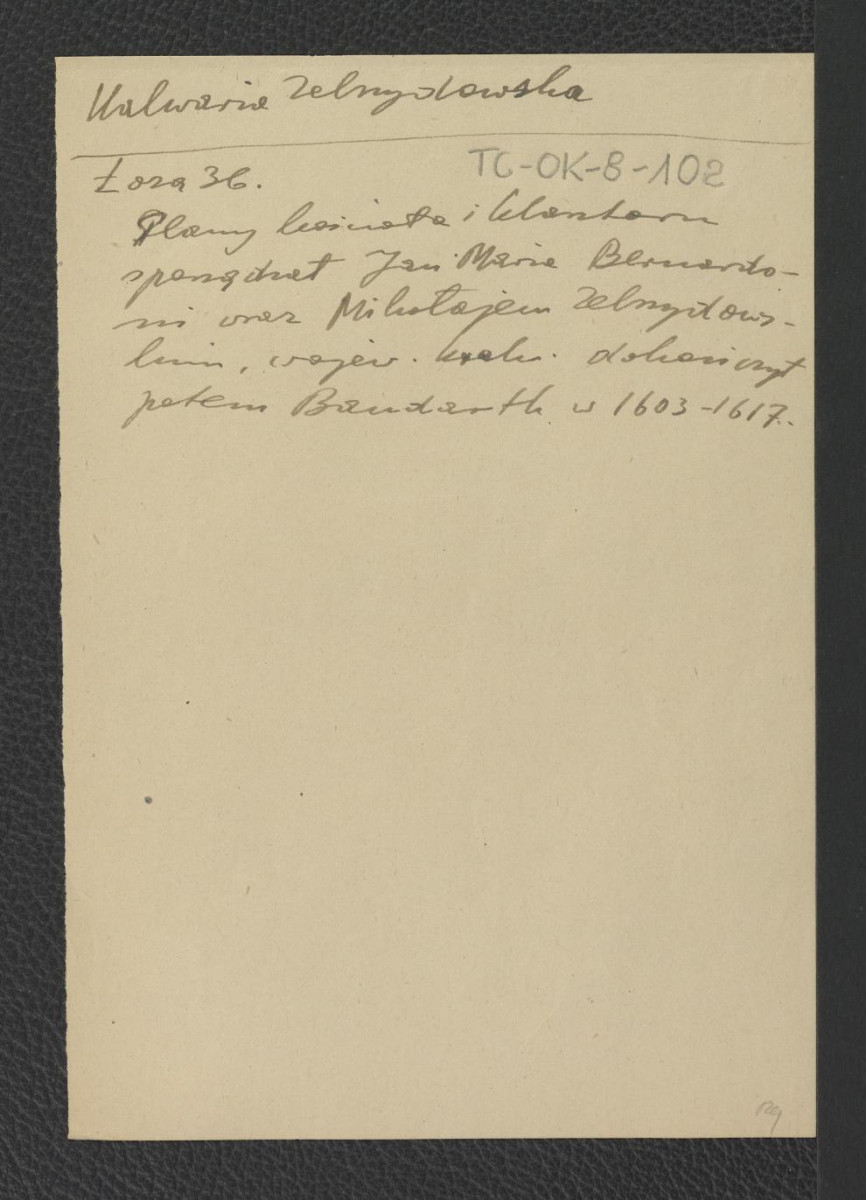 Kalwaria Zebrzydowska
TC-OK-8-102
Łoza 36.
Plany kościoła i klasztoru
sporządził Jan Maria Bernardo-
ni wraz Mikołajem Zebrzydows-
kim, wojew. krak. dokończył
potem Baudarth w 1603-1617.